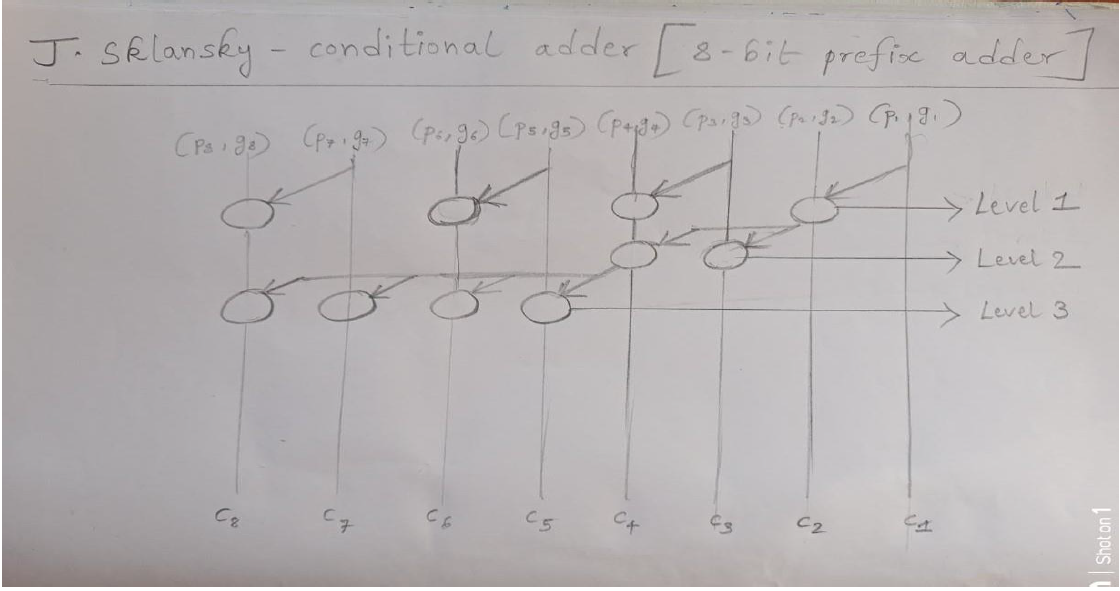 J. Sklansky - conditional adder [8-bit prefix adder]
(p8, g8) (p7, g7) (p6, g6) (p5, g5) (p4, g4) (p3, g3) (p2, g2) (p1, g1)
Level 1
Level 2
Level 3
C8 C7 C6 C5 C4 C3 C2 C1
Shot on 1